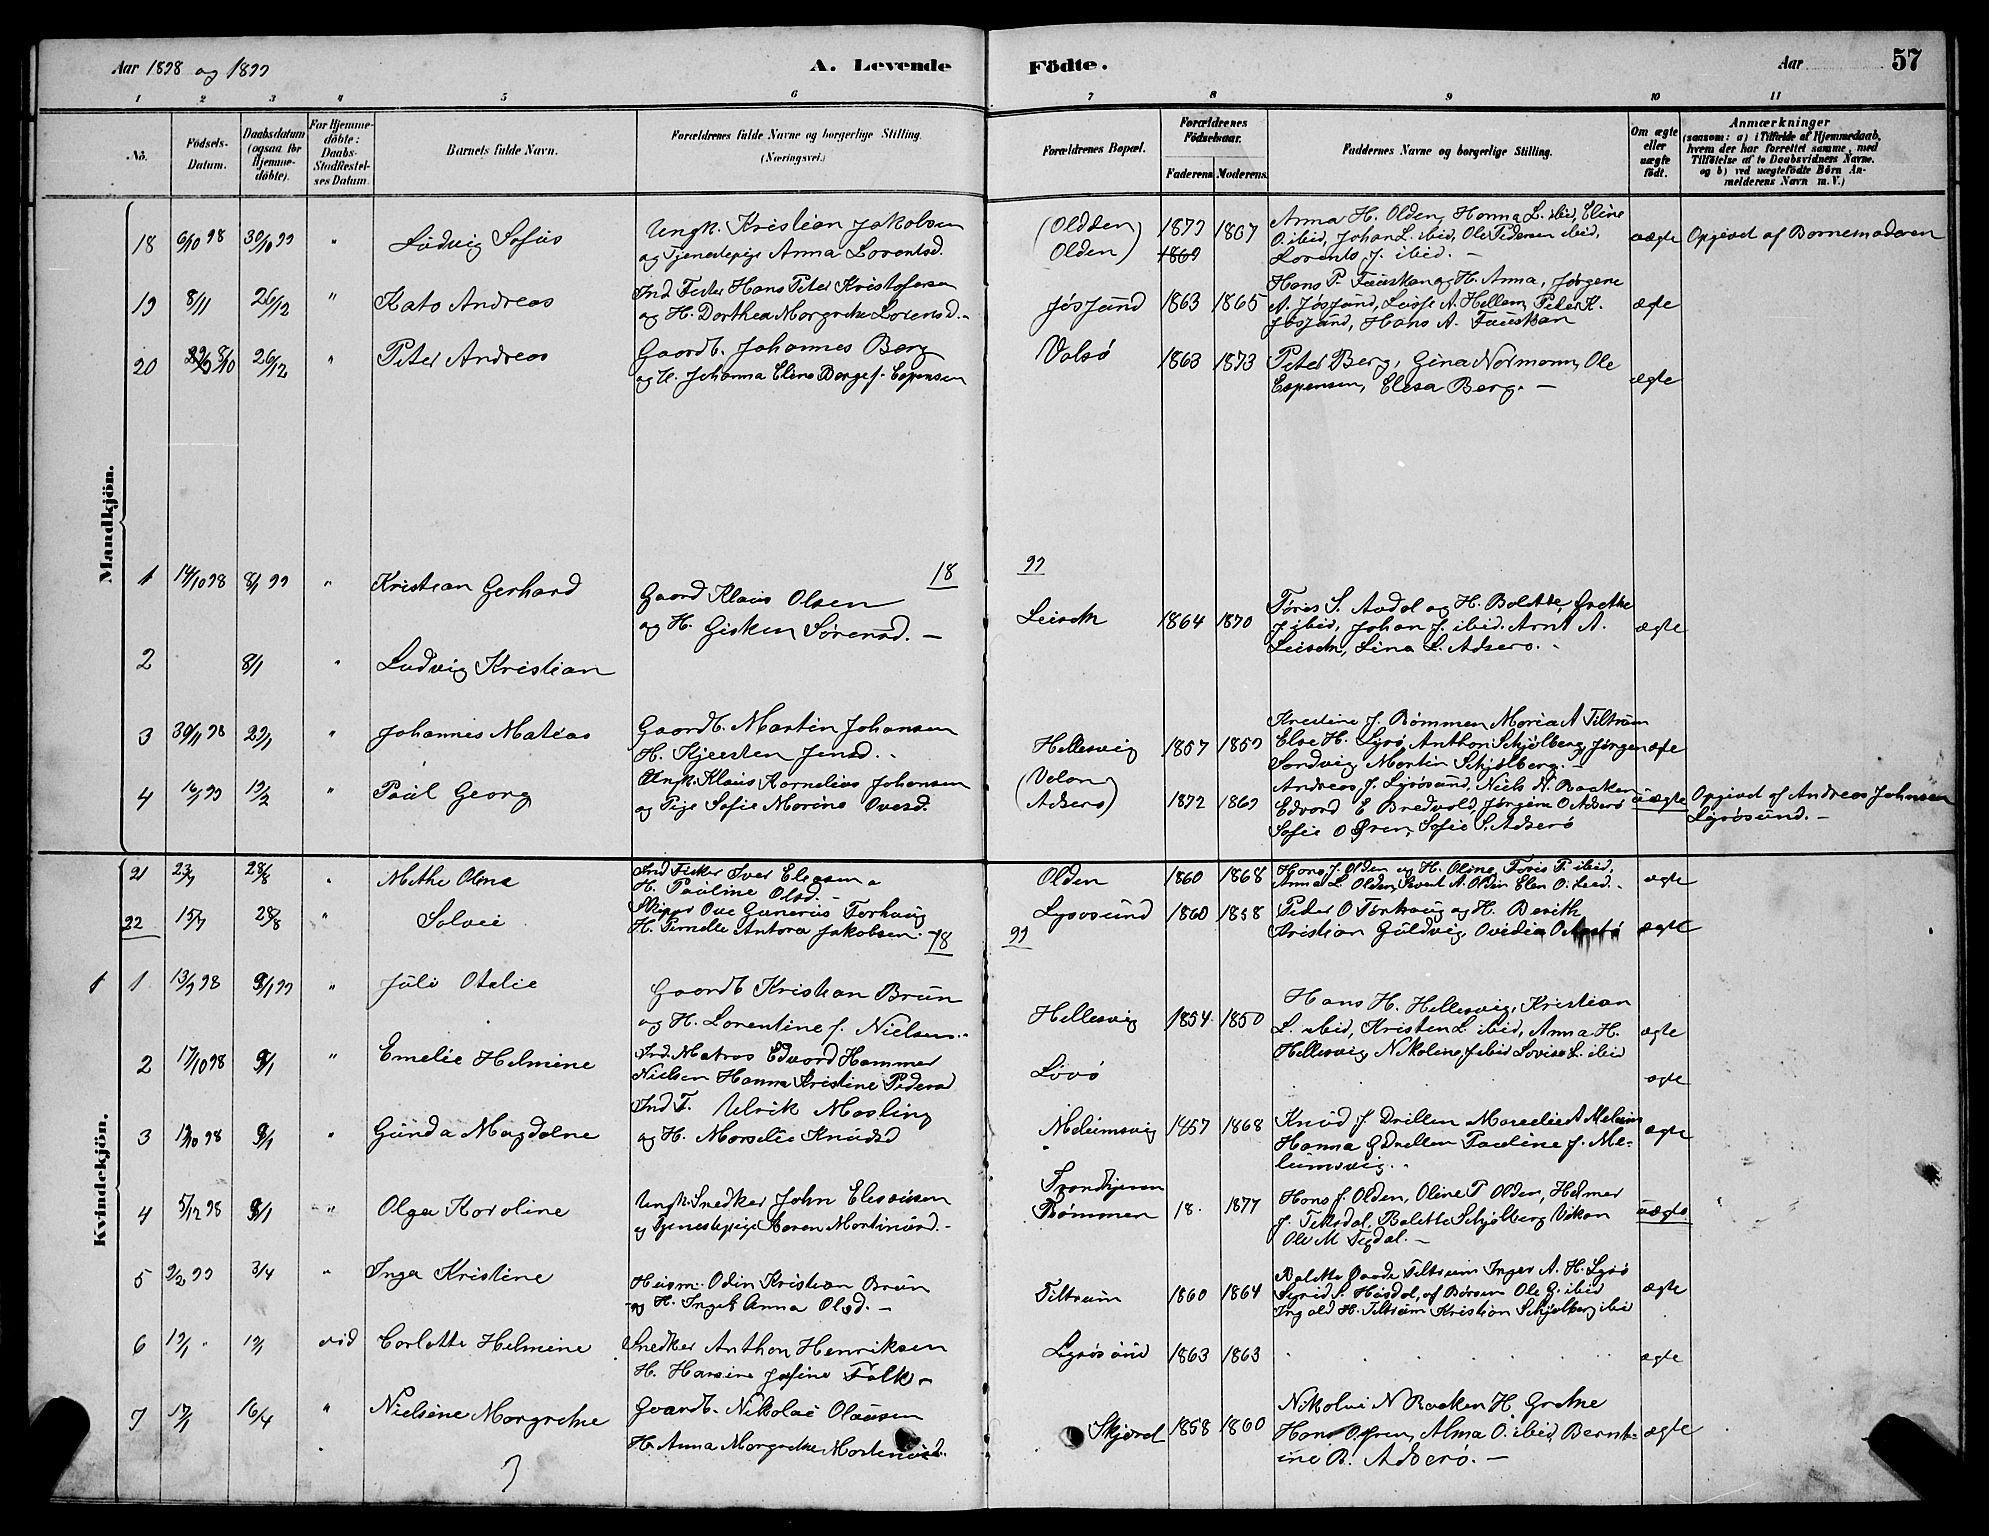 Aar 1898 og 1899
A. Levende
Födte.
Aar
57
1 2 3 4 5 6 7 8 9 10 11
No.
Födsels-Datum.
Daabsdatum (ogsaa for Hjemme-döbte).
For Hjemme-döbte: Daabs-Stadfæstel-ses Datum.
Barnets fulde Navn.
Forældrenes fulde Navne og borgerlige Stilling. (Næringsvei.)
Forældrenes Bopæl.
Forældrenes Födselsaar.
Faderens Moderens.
Faddernes Navne og borgerlige Stilling.
Om ægte eller uægte födt.
Anmærkninger
(saasom: a) i Tilfælde af Hjemmedaab,
hvem der har forrettet samme, med
Tilföielse af to Daabsvidners Navne.
og b) ved uægtefödte Börn An-
melderens Navn m.V.)
Mandkjön.
18 6/10 98 30/10 99 " Ludvig Sofus
Ungk. Kristian Jakobsen
og Tjenestepige Anna Lorentsd.
(Oldden
Olden)
1879 1867
1869
Anna H. Olden, Hanna L. ibid, Eline
O. ibid, Johan L. ibid, Ole Pedersen ibid,
Lorents J. ibid. —
uægte Opgivet af Barnemoderen
19 8/11 26/12 " Kato Andreas
Ind. Fisker Hans Peter Kristofersen
og H. Dorthea Margrethe Lorensd. -
Jøssund 1863 1865
Hans P. Fauskan og H. Anna, Jørgine
A. Jøssund, A. Hellem, Peter K.
Jøssund, Hans A. Fauskan
ægte
20 8/10 26/12 " Peter Andreas
Gaardb. Johannes Berg
og H. Johanna Eline Berge f. Espensen
Valsø 1863 1873
Peter Berg, Gina Normann, Ole
Espensen, Elesa Berg. —
ægte
18 99
1 14/10 98 8/1 99 " Kristian Gerhard
Gaard Klaus Olsen
og H. Gisken Sørensd. —
1864 1870
S. Aadal og H. Bolette, Grethe
J. ibid, Johan J. ibid. Arnt A.
Lina L. Adserø. -
ægte
2 8/1 " Ludvig Kristian
3 30/11 98 29/1 " Johannes Matias
Gaardb. Martin Johansen
H. Kjersten Jensd. -
Hellesvig 1857 1859
Kristine J. Rømmen Maria A Tiltrum
Else H. Lysø Anthon Schjølberg, Jørgen
Sandvig, Martin Schjølberg. —
ægte
4 16/1 99 19/2 " Paul Georg
Ungk. Klaus Kornelius Johansen
og Pige Sofie Marine Ovesd.
(
Adserø)
1872 1869
Andreas J. Lysøsund, Niels N. Bakken
Edvard E Bredvold, Jørgine O Adserø
Sofie O Øren, Sofie S. Adserø
uægte Opgivet af Andreas Johnsen
Lysøsund. —
Kvindekjön.
21 23/7 28/8 " Methe Oline
Ind Fisker Iver Eliasen
H. Pauline Olsd. -
Olden 1860 1868
Hans J. Olden og H. Oline, P. ibid,
Anna L. Olden, Sivert A. Olden Elen O. ibid. -
ægte
22 15/7 28/8 " Solvei
Skipper Ove Gunerius Torkvug
H. Antora Jakobsen. -
Lysøsund 1860 1858
Peder O Torkvug og H. Berith
Kristian Guldvig, Ovidia O
ægte
18 99
1 1 13/9 98 8/1 99 " Juli Otelie
Gaardb Kristian Brun
og H. Lorentine f. Nielsen. -
Hellesvig 1854 1850
Hans H. Hellesvig, Kristian
L. ibid, Kristen L. ibid, Anna H.
Hellesvig, Nikoline J ibid Lovise L. ibid
ægte
2 17/10 98 8/1 " Emelie Helmine
Ind. Matros Edvard Hammer
Nielsen Hanna Kristine Pedersd
Lysø
ægte
3 19/10 98 8/1 " Gunda Magdalne
Ind F. Ulrik Masling
og H. Marselie Knudsd
Meleimsvig 1857 1868
Knud J. Drillen Marselie A
Hanna G Drillen Pauline J. Me-
leimsvig. -
ægte
4 5/12 98 8/1 " Olga Karoline
Ungk. Snedker John Elesæusen
og Tjenestepige Karen Martinusd. -
Trondhjem
Rømmen 18. 1877
Hans J. Olden, Oline P Olden, Helmer
J. Teksdal, Bolette Schjølberg
Ole M Tegdal. —
uægte
5 9/2 99 3/4 " Inga Kristine
Odin Kristian Brun
og H. Ingeb. Anna Olsd. —
Tiltrum 1860 1864
Bolette Tiltrum Inger A. H. Lysø
Sigrid S. Hasdal, af Børsen Ole G. ibid
H. Tiltrum Kristian Schjølberg ibid
ægte
6 19/1 " 19/1 vid Corlotte Helmine
Snedker Anthon Henriksen
H. Hansine Josefine Falk -
Lysøsund 1863 1863
ægte
7 17/1 16/4 " Nielsine Margrethe
Gaardb. Nikolai Olausen
H. Anna Margrethe Mortensd.
Skjørel 1858 1860
Nikolai N Bakken H Grethe
Hans O Øren, Alma O. ibid, Bernt-
ine B. Adserø. —
ægte